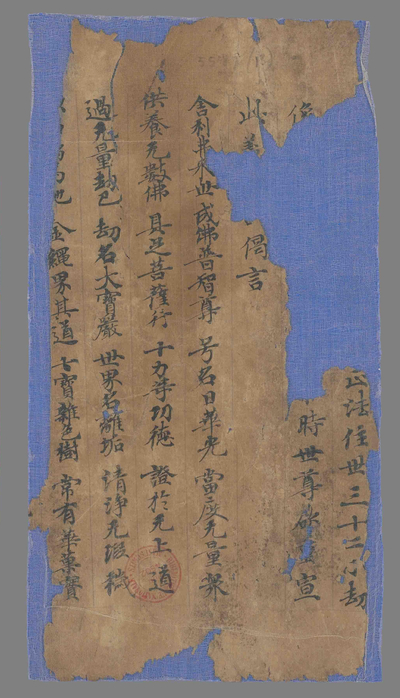 正法住世三十二小劫
像 時世尊欲重宣
此義 偈言
舍利弗來世 成佛普智尊 号名曰華光 當度无量眾
供養无數佛 具足菩薩行 十力等功德 證於无上道
過无量劫已 劫名大寶嚴 世界名離垢 清淨无瑕穢
地 金繩界其道 七寶雜色樹 常有華菓實